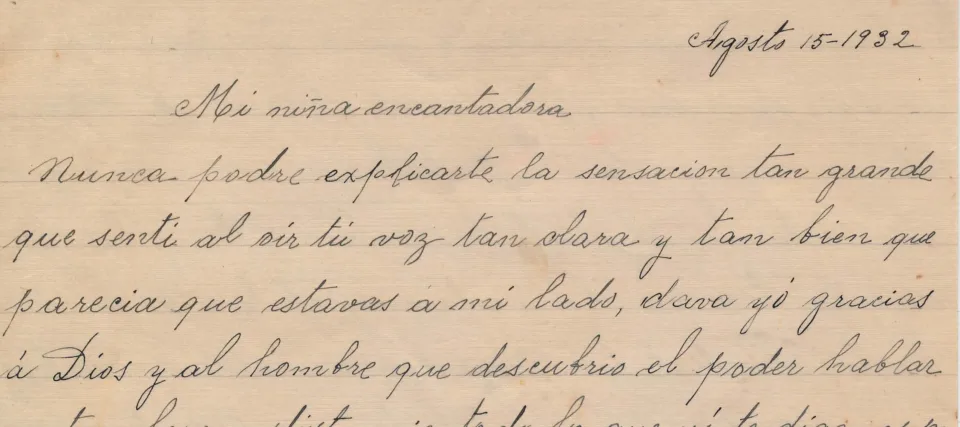 Agosto 15-1932
Mi niña encantadora
Nunca podre explicarte la sensacion tan grande
que senti al oir tú voz tan clara y tan bien que
parecia que estavas á mi lado, dava yó gracias
á Dios y al hombre que descubrio el poder hablar